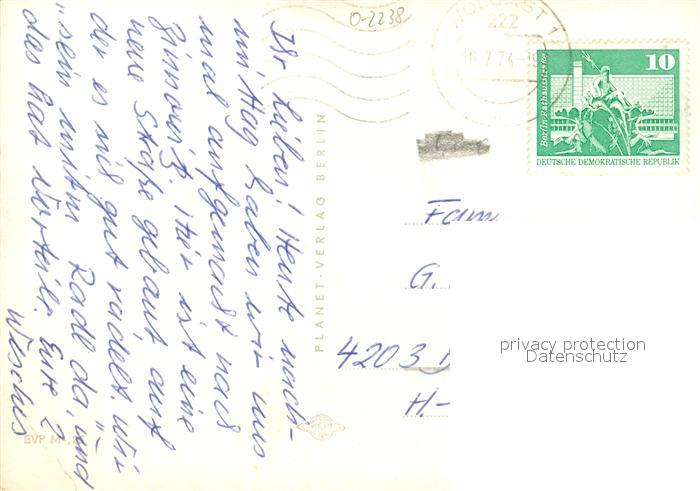 Ihr Lieben! Heute nach-
mittag haben wir uns
mal aufgemacht nach
Zinnowitz. Hier ist eine
neue Straße gebaut auf
der es sich gut radelt. Wir
sein mitm Radl da, und
das hat Vorteile. Eure 2
O-2238
WOLGAST 1
222
10
Berlin, Rathausstraße
DEUTSCHE DEMOKRATISCHE REPUBLIK
PLANET-VERLAG BERLIN
Fam
G.
4203
H-
EVP M
privacy protection
Datenschutz